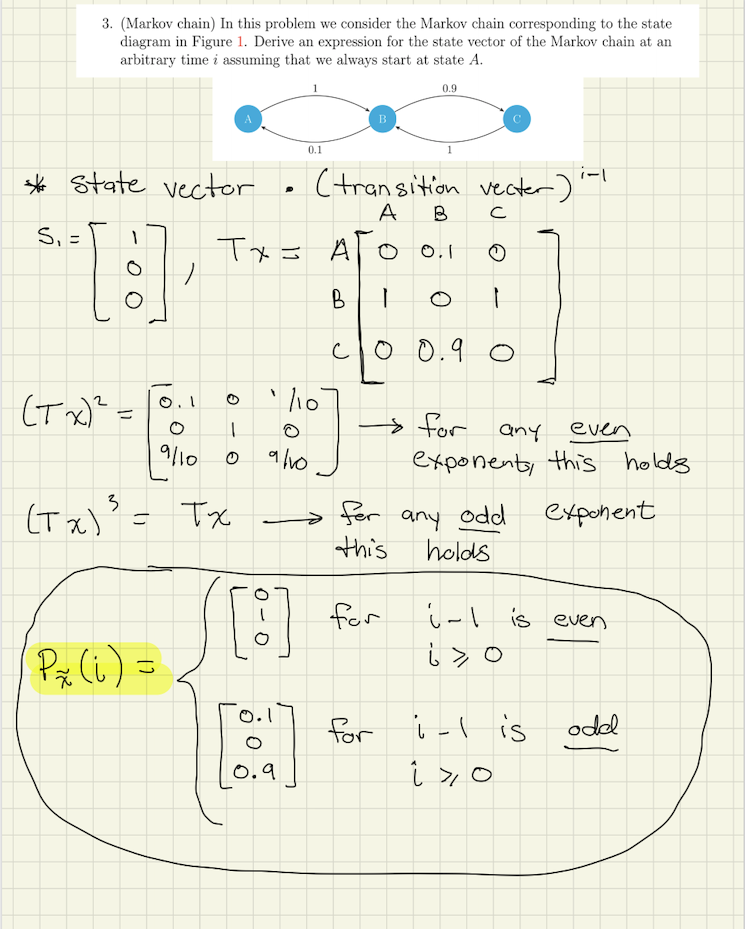 3. (Markov chain) In this problem we consider the Markov chain corresponding to the state
diagram in Figure 1. Derive an expression for the state vector of the Markov chain at an
arbitrary time i assuming that we always start at state A.
1 0.9
A B C
0.1 1
* state vector · (transition vector)^{i-1}
A B C
S₁ = [1 0 0], Tx = A [0 0.1 0
B 1 0 1
C 0 0.9 0]
(Tx)² = [0.1 0 1/10
0 1 0
9/10 0 9/10] → for any even
exponents, this holds
(Tx)³ = Tx → for any odd exponent
this holds
P_x̃(i) = { [0 1 0] for i-1 is even
i ≥ 0
[0.1 0 0.9] for i-1 is odd
i ≥ 0